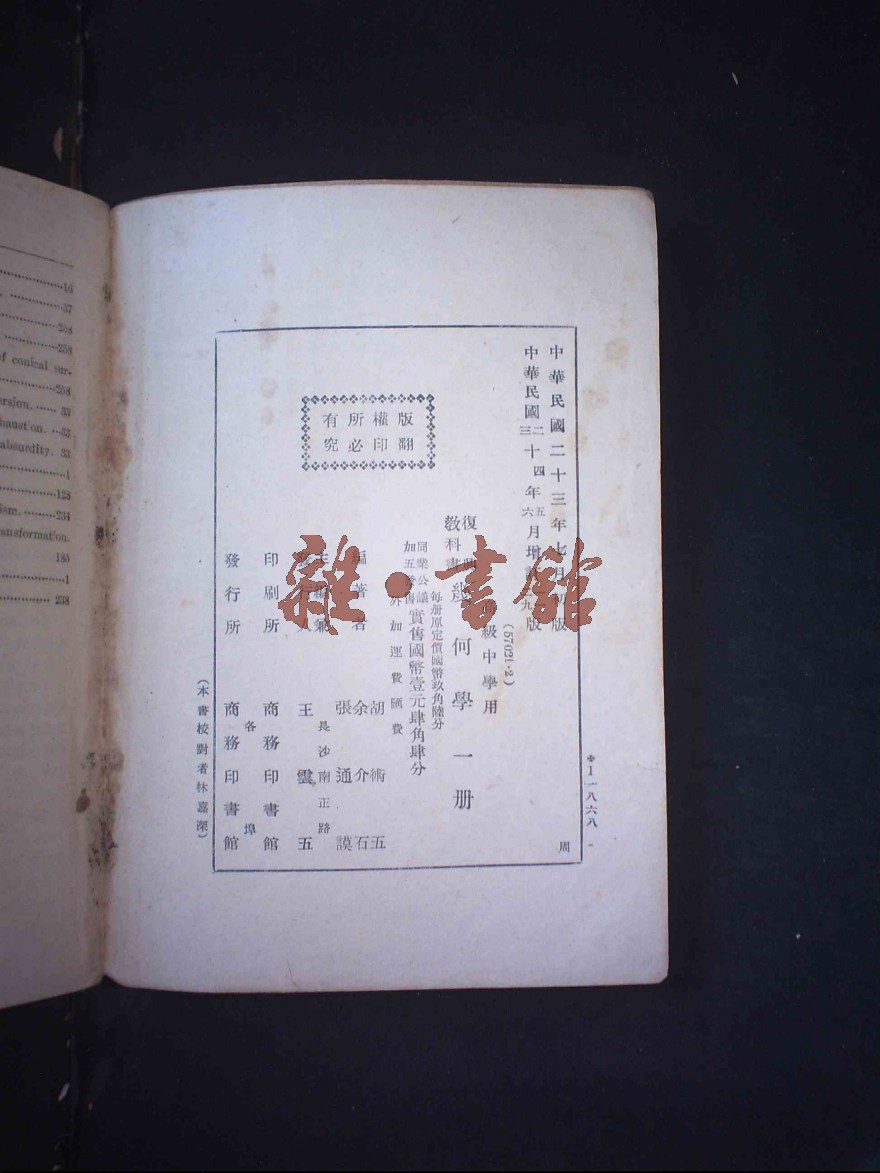 中華民國二十三年七月初版
中華民國二十四年五月增訂
三十二年六月 九版
(57021·2)
級中學用
復
教科書 幾何學一册
每册原定價國幣玖角陸分
實售國幣壹元肆角肆分
同業公議
加五發售
外加運費匯費
版權所有
翻印必究
編著者 胡術五
余介石
張通謨
主編兼
發行人 王雲五
長沙南正路
印刷所 商務印書館
發行所 商務印書館
各埠
(本書校對者林嘉深)
＊I一八六八
周
雜·書館
16
37
254
258
of conical sur-
258
ersion. 33
haustion. 33
absurdity. 33
1
128
ism. 234
ransformation.
185
1
238